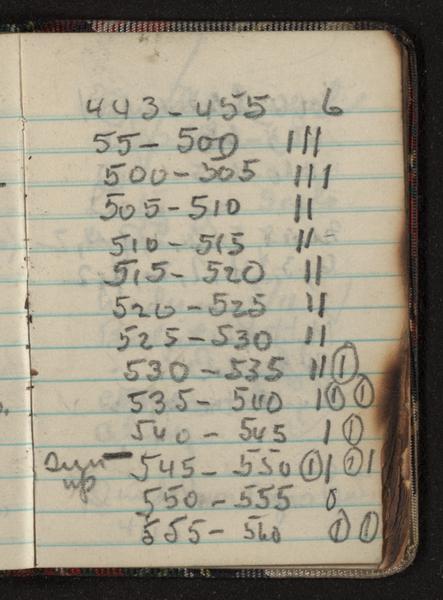 443 - 455 6
55 - 500 |||
500 - 505 |||
505 - 510 ||
510 - 515 ||
515 - 520 ||
520 - 525 ||
525 - 530 ||
530 - 535 ||①
535 - 540 |①①
540 - 545 |①
sign - 545 - 550 ①|①|
up
550 - 555 0
555 - 560 ①①